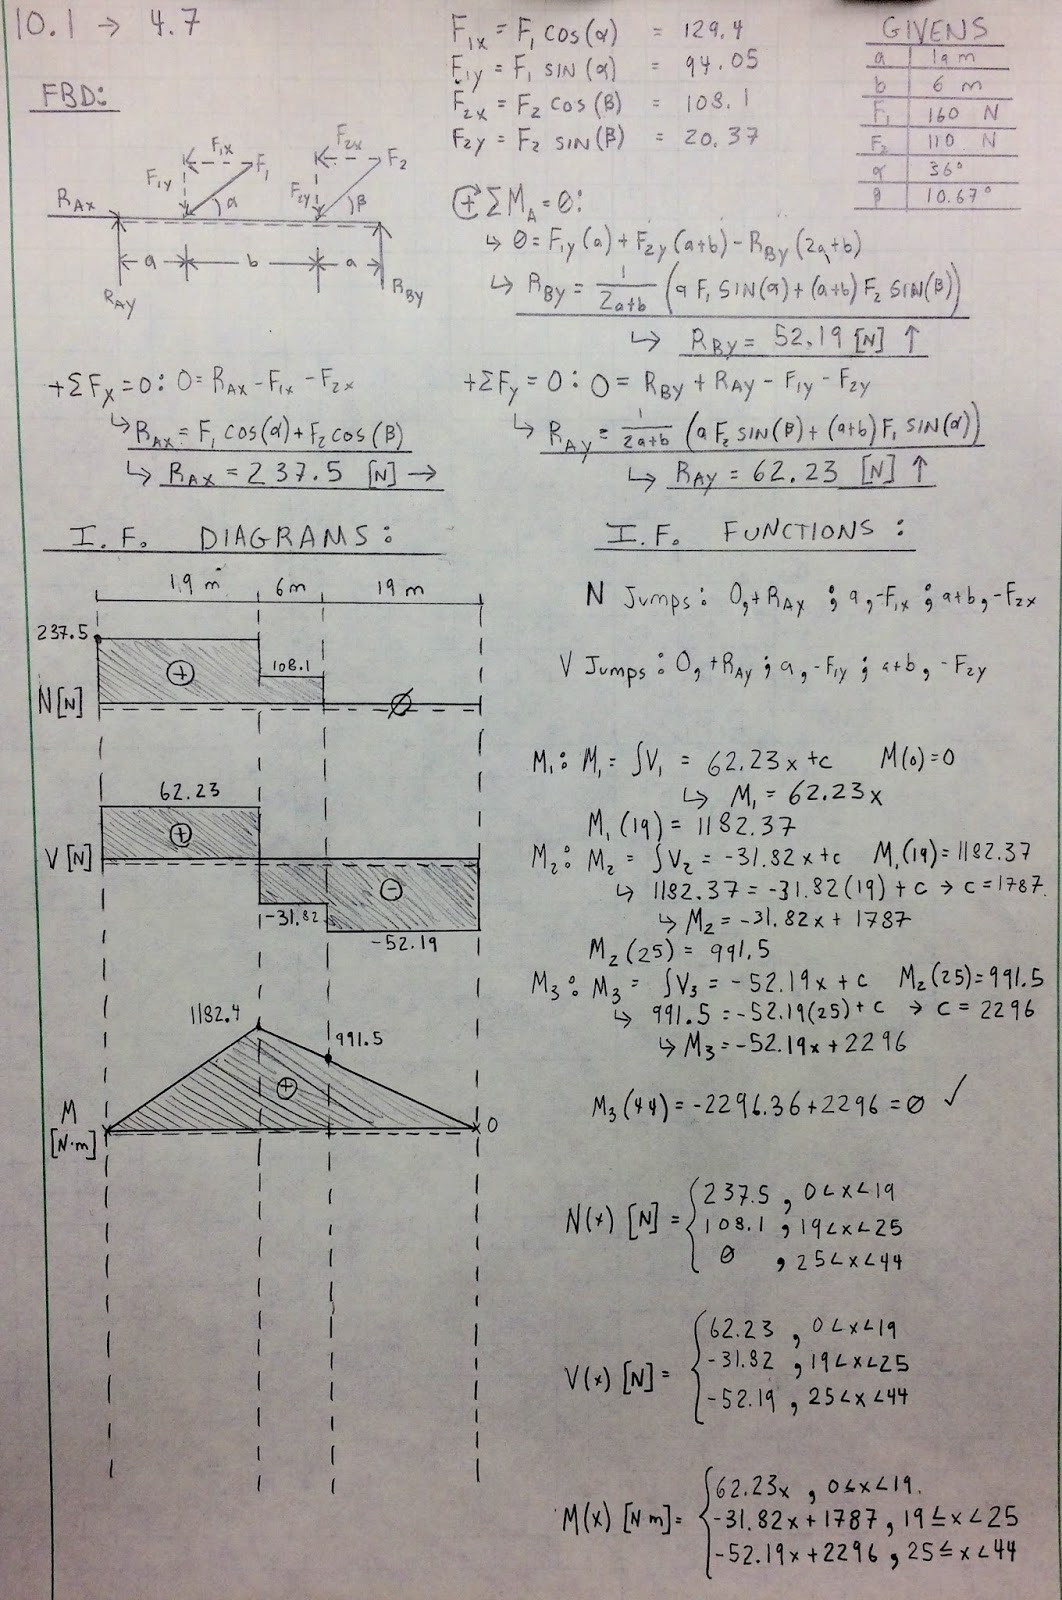 10.1 → 4.7
F1x = F1 cos(α) = 129.4
F1y = F1 sin(α) = 94.05
F2x = F2 cos(β) = 108.1
F2y = F2 sin(β) = 20.37
GIVENS
a 19 m
b 6 m
F1 160 N
F2 110 N
α 36°
β 10.67°
FBD:
F1x F1 F2x F2
F1y α F2y β
RAx
a b a
RAy RBy
+ ΣMA = 0:
↳ 0 = F1y(a) + F2y(a+b) - RBy(2a+b)
↳ RBy = 1/2a+b (a F1 SIN(α) + (a+b) F2 SIN(β))
↳ RBy = 52.19 [N] ↑
+ΣFx = 0: 0 = RAx - F1x - F2x
↳ RAx = F1 cos(α) + F2 cos(β)
↳ RAx = 237.5 [N] →
+ΣFy = 0: 0 = RBy + RAy - F1y - F2y
↳ RAy = 1/2a+b (a F2 SIN(β) + (a+b) F1 SIN(α))
↳ RAy = 62.23 [N] ↑
I.F. DIAGRAMS:
19 m 6m 19 m
237.5
+ 108.1
N[N] Ø
62.23
+
V [N]
-
-31.82
-52.19
1182.4
991.5
+
M
[N·m]
0
I.F. FUNCTIONS:
N Jumps: 0, +RAx ; a, -F1x ; a+b, -F2x
V Jumps: 0, +RAy ; a, -F1y ; a+b, -F2y
M1: M1 = ∫V1 = 62.23x + c M(0) = 0
↳ M1 = 62.23x
M1(19) = 1182.37
M2: M2 = ∫V2 = -31.82x + c M1(19) = 1182.37
↳ 1182.37 = -31.82(19) + c → c = 1787.
↳ M2 = -31.82x + 1787
M2(25) = 991.5
M3: M3 = ∫V3 = -52.19x + c M2(25) = 991.5
↳ 991.5 = -52.19(25) + c → c = 2296
↳ M3 = -52.19x + 2296
M3(44) = -2296.36 + 2296 = Ø ✓
N(x) [N] = { 237.5 , 0<x<19
108.1 , 19<x<25
Ø , 25<x<44
V(x) [N] = { 62.23 , 0<x<19
-31.82 , 19<x<25
-52.19 , 25<x<44
M(x) [N·m] = { 62.23x , 0≤x<19.
-31.82x + 1787 , 19≤x<25
-52.19x + 2296 , 25≤x<44